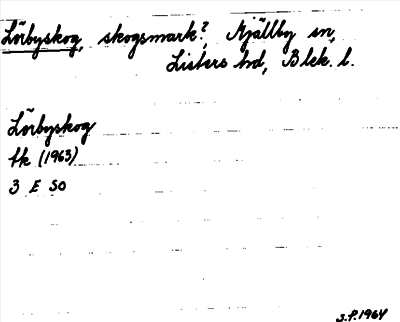 Lörbyskog, skogsmark?, Mjällby sn,
Listers hd, Blek. l.
Lörbyskog
tk (1963)
3 E SO
S.P. 1964